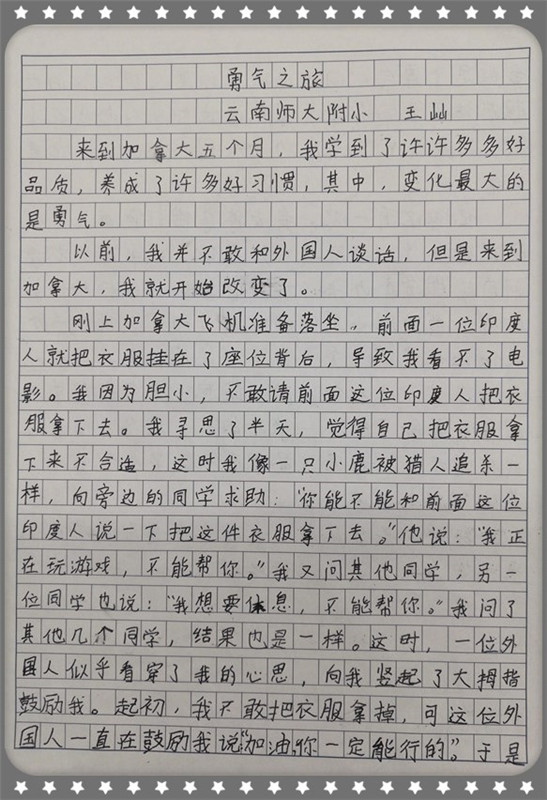 勇气之旅
云南师大附小 王灿
来到加拿大五个月，我学到了许许多多好
品质，养成了许多好习惯，其中，变化最大的
是勇气。
以前，我并不敢和外国人谈话，但是来到
加拿大，我就开始改变了。
刚上加拿大飞机准备落坐，前面一位印度
人就把衣服挂在了座位背后，导致我看不了电
影。我因为胆小，不敢请前面这位印度人把衣
服拿下去。我寻思了半天，觉得自己把衣服拿
下来不合适，这时我像一只小鹿被猎人追杀一
样，向旁边的同学求助：“你能不能和前面这位
印度人说一下把这件衣服拿下去。”他说：“我正
在玩游戏，不能帮你。”我又问其他同学，另一
位同学也说：“我想要休息，不能帮你。”我问了
其他几个同学，结果也是一样。这时，一位外
国人似乎看穿了我的心思，向我竖起了大拇指
鼓励我。起初，我不敢把衣服拿掉，可这位外
国人一直在鼓励我说“加油你一定能行的”。于是